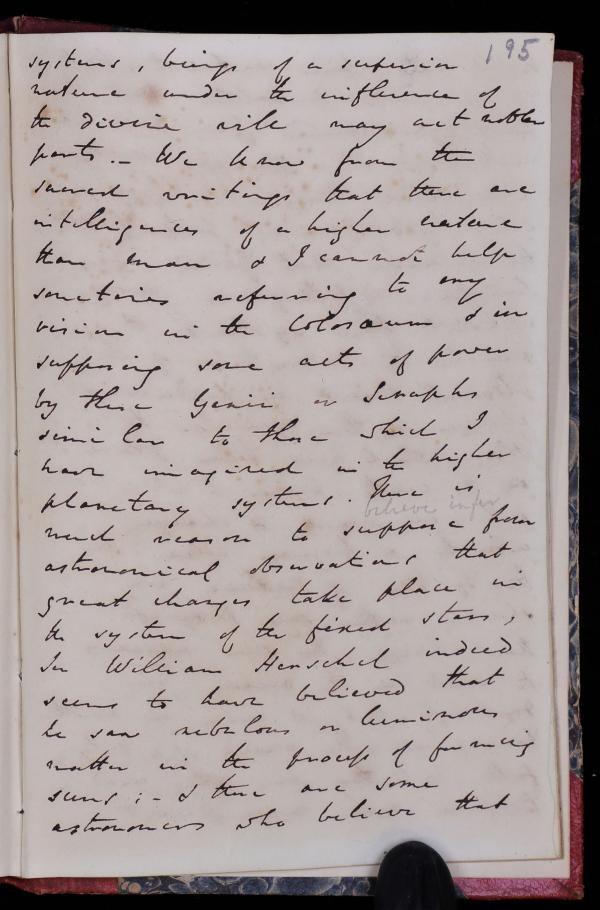 195
systems, beings of a superior
nature under the influence of
the divine will may act nobler
parts. - We know from the
sacred writings that there are
intelligences of a higher nature
than man & I cannot help
sometimes referring to my
vision in the Colosæum & in
supposing some acts of power
by these Genii or Seraphs
similar to those which I
have imagined in the higher
planetary systems. There is
believe infer
much reason to suppose from
astronomical observations that
great changes take place in
the system of the fixed stars,
Sir William Herschel indeed
seems to have believed that
he saw nebulous or luminous
matter in the process of forming
suns; - & there are some
astronomers who believe that